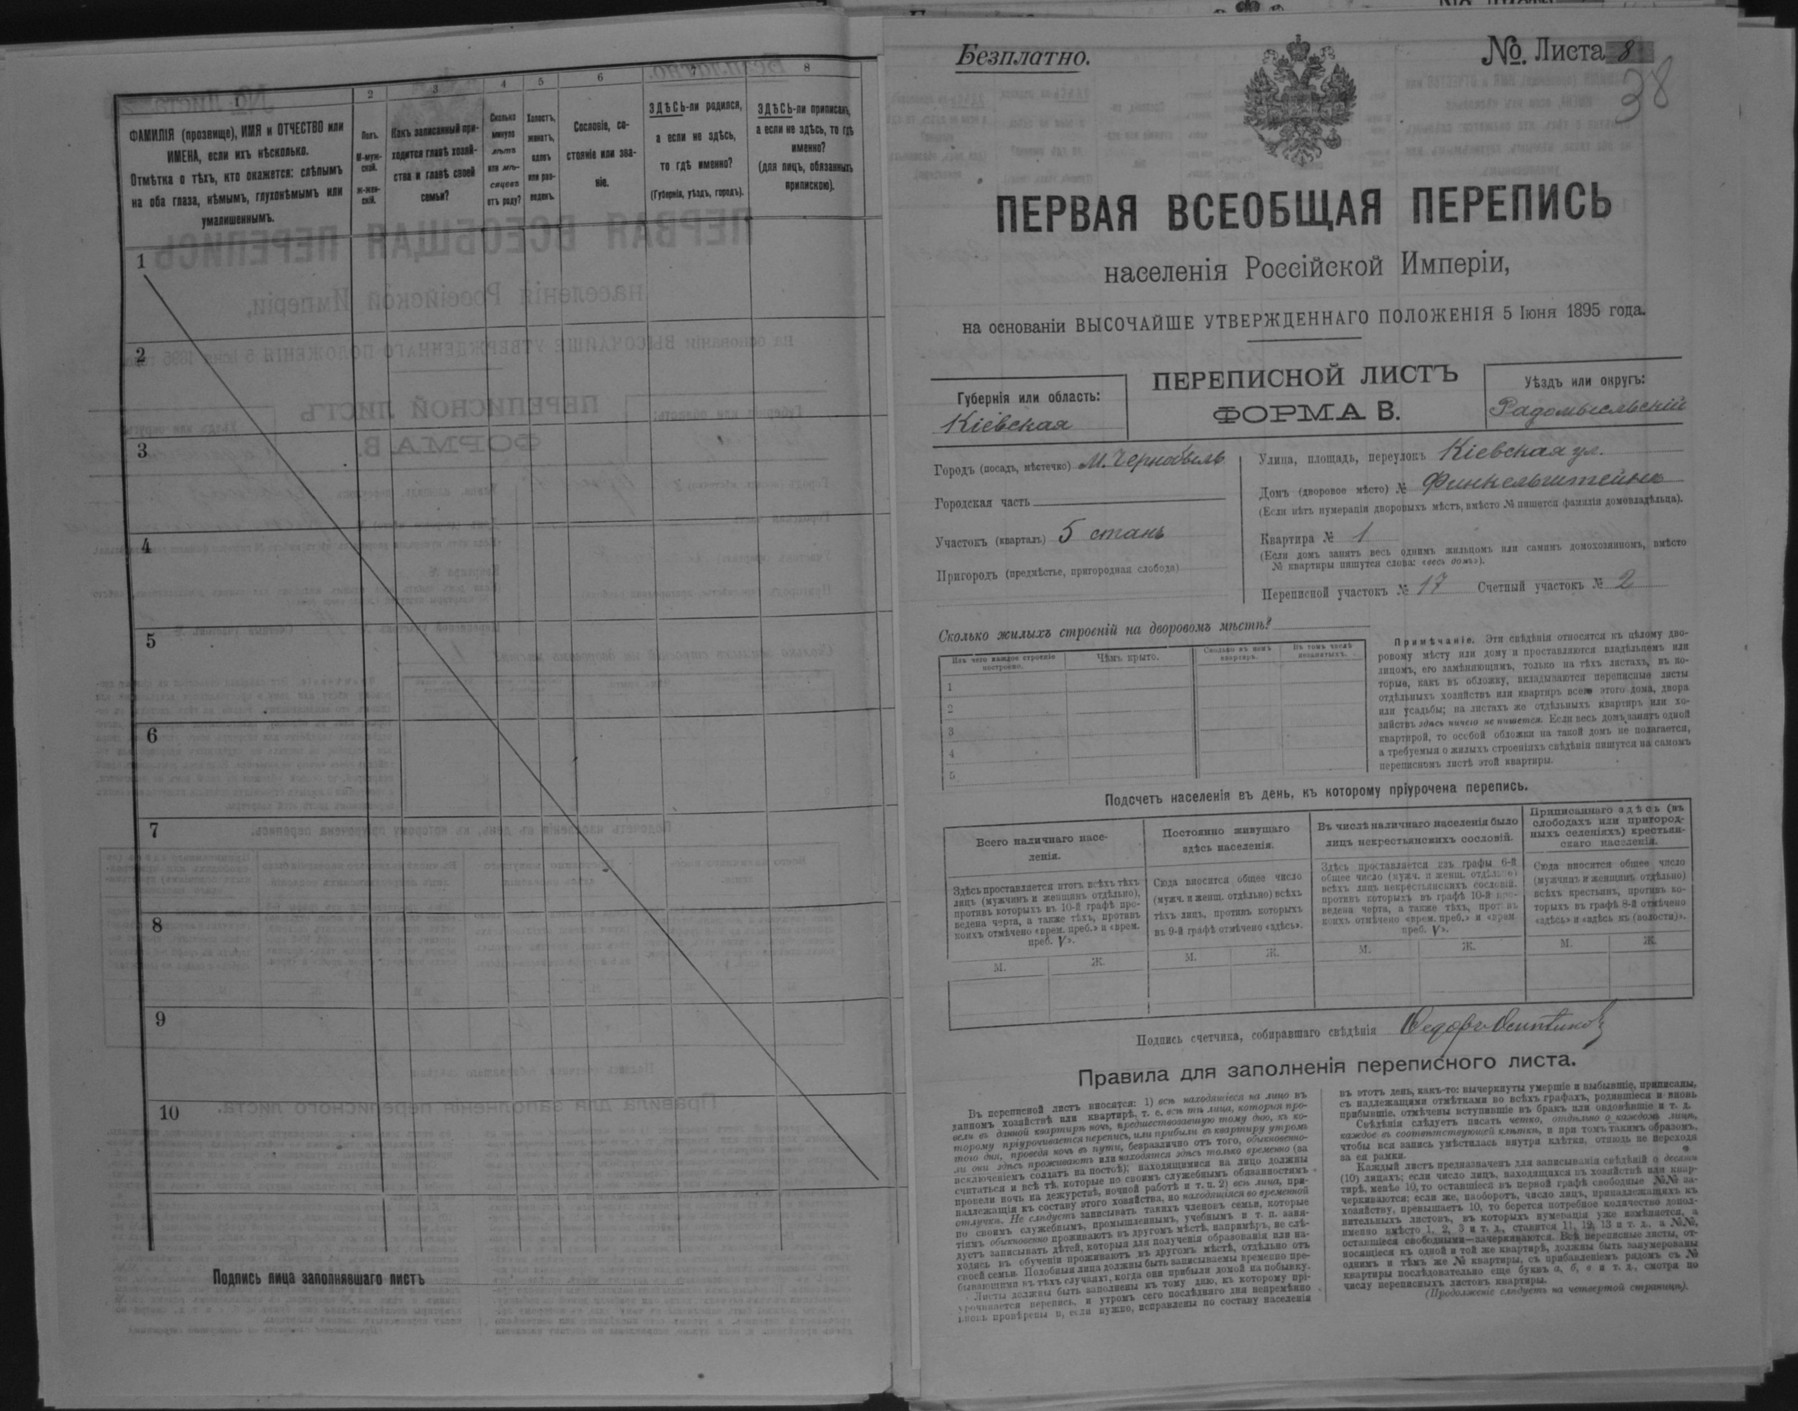 1
2
3
4
5
6
7
8
ФАМИЛІЯ (прозвище), ИМЯ и ОТЧЕСТВО или
ИМЕНА, если ихъ нѣсколько.
Отмѣтка о тѣхъ, кто окажется: слѣпымъ
на оба глаза, нѣмымъ, глухонѣмымъ или
умалишеннымъ.
Полъ.
М-муж-
ской.
Ж-жен-
скій.
Какъ записанный при-
ходится главѣ хозяй-
ства и главѣ своей
семьи?
Сколько
минуло
лѣтъ
или мѣ-
сяцевъ
отъ роду?
Холостъ,
женатъ,
вдовъ
или раз-
веденъ.
Сословіе, со-
стояніе или зва-
ніе.
ЗДѢСЬ-ли родился,
а если не здѣсь,
то гдѣ именно?
(Губернія, уѣздъ, городъ).
ЗДѢСЬ-ли приписанъ,
а если не здѣсь, то гдѣ
именно?
(для лицъ, обязанныхъ
припискою).
1
2
3
4
5
6
7
8
9
10
Подпись лица заполнявшаго листъ
Безплатно.
№ Листа 8
38
ПЕРВАЯ ВСЕОБЩАЯ ПЕРЕПИСЬ
населенія Россійской Имперіи,
на основаніи ВЫСОЧАЙШЕ УТВЕРЖДЕННАГО ПОЛОЖЕНІЯ 5 Іюня 1895 года.
Губернія или область:
Кіевская
ПЕРЕПИСНОЙ ЛИСТЪ
ФОРМА В.
Уѣздъ или округъ:
Радомысльскій
Городъ (посадъ, мѣстечко) М. Чернобыль
Городская часть
Участокъ (кварталъ) 5 станъ
Пригородъ (предмѣстье, пригородная слобода)
Улица, площадь, переулокъ Кіевская ул.
Домъ (дворовое мѣсто) № Финкельштейнъ
(Если нѣтъ нумераціи дворовыхъ мѣстъ, вмѣсто № пишется фамилія домовладѣльца).
Квартира № 1
(Если домъ занятъ весь однимъ жильцомъ или самимъ домохозяиномъ, вмѣсто
№ квартиры пишутся слова: «весь домъ»).
Переписной участокъ № 17 Счетный участокъ № 2
Сколько жилыхъ строеній на дворовомъ мѣстѣ?
Изъ чего каждое строеніе
построено.
Чѣмъ крыто.
Сколько въ немъ
квартиръ.
Въ томъ числѣ
незанятыхъ.
1
2
3
4
5
Примѣчаніе. Эти свѣдѣнія относятся къ цѣлому дво-
ровому мѣсту или дому и проставляются владѣльцемъ или
лицомъ, его замѣняющимъ, только на тѣхъ листахъ, въ ко-
торые, какъ въ обложку, вкладываются переписные листы
отдѣльныхъ хозяйствъ или квартиръ всего этого дома, двора
или усадьбы; на листахъ же отдѣльныхъ квартиръ или хо-
зяйствъ здѣсь ничего не пишется. Если весь домъ занятъ одной
квартирой, то особой обложки на такой домъ не полагается,
а требуемыя о жилыхъ строеніяхъ свѣдѣнія пишутся на самомъ
переписномъ листѣ этой квартиры.
Подсчетъ населенія въ день, къ которому пріурочена перепись.
Всего наличнаго насе-
ленія.
Здѣсь проставляется итогъ всѣхъ тѣхъ
лицъ (мужчинъ и женщинъ отдѣльно),
противъ которыхъ въ 10-й графѣ про-
ведена черта, а также тѣхъ, противъ
коихъ отмѣчено «врем. преб.» и «врем.
преб. V».
М. Ж.
Постоянно живущаго
здѣсь населенія.
Сюда вносится общее число
(мужч. и женщ. отдѣльно) всѣхъ
тѣхъ лицъ, противъ которыхъ
въ 9-й графѣ отмѣчено «здѣсь».
М. Ж.
Въ числѣ наличнаго населенія было
лицъ некрестьянскихъ сословій.
Здѣсь проставляется изъ графы 6-й
общее число (мужч. и женщ. отдѣльно)
всѣхъ лицъ некрестьянскихъ сословій,
противъ которыхъ въ графѣ 10-й про-
ведена черта, а также тѣхъ, противъ
коихъ отмѣчено «врем. преб.» и «врем.
преб. V».
М. Ж.
Приписаннаго здѣсь (въ
слободахъ или пригород-
ныхъ селеніяхъ) крестьян-
скаго населенія.
Сюда вносится общее число
(мужчинъ и женщинъ отдѣльно)
всѣхъ крестьянъ, противъ ко-
торыхъ въ графѣ 8-й отмѣчено
«здѣсь» и «здѣсь въ (волости)».
М. Ж.
Подпись счетчика, собиравшаго свѣдѣнія Федоръ
Правила для заполненія переписного листа.
Въ переписной листъ вносятся: 1) всѣ находящіеся на лицо въ
данномъ хозяйствѣ или квартирѣ, т. е. всѣ тѣ лица, которыя про-
вели въ данной квартирѣ ночь, предшествовавшую тому дню, къ ко-
торому пріурочивается перепись, или прибыли въ квартиру утромъ
того дня, проведя ночь въ пути, безразлично отъ того, обыкновенно-
ли они здѣсь проживаютъ или находятся здѣсь только временно (за
исключеніемъ солдатъ на постоѣ); находящимися на лицо должны
считаться и всѣ тѣ, которые по своимъ служебнымъ обязанностямъ
провели ночь на дежурствѣ, ночной работѣ и т. п. 2) всѣ лица, при-
надлежащія къ составу этого хозяйства, но находящіяся во временной
отлучкѣ. Не слѣдуетъ записывать такихъ членовъ семьи, которые
по своимъ служебнымъ, промышленнымъ, учебнымъ и т. п. заня-
тіямъ обыкновенно проживаютъ въ другомъ мѣстѣ, напримѣръ, не слѣ-
дуетъ записывать дѣтей, которыя для полученія образованія или на-
ходясь въ обученіи проживаютъ въ другомъ мѣстѣ, отдѣльно отъ
своей семьи. Подобныя лица должны быть записываемы временно пре-
бывающими въ тѣхъ случаяхъ, когда они прибыли домой на побывку.
Листы должны быть заполнены къ тому дню, къ которому прі-
урочивается перепись, и утромъ сего послѣдняго дня непремѣнно
вновь провѣрены и, если нужно, исправлены по составу населенія
въ этотъ день, какъ-то: вычеркнуты умершіе и выбывшіе, приписаны,
съ надлежащими отмѣтками во всѣхъ графахъ, родившіеся и вновь
прибывшіе, отмѣчены вступившіе въ бракъ или овдовѣвшіе и т. д.
Свѣдѣнія слѣдуетъ писать четко, отдѣльно о каждомъ лицѣ,
каждое въ соотвѣтствующей клѣткѣ, и при томъ такимъ образомъ,
чтобы вся запись умѣстилась внутри клѣтки, отнюдь не переходя
за ея рамки.
Каждый листъ предназначенъ для записыванія свѣдѣній о десяти
(10) лицахъ; если число лицъ, находящихся въ хозяйствѣ или квар-
тирѣ, менѣе 10, то оставшіеся въ первой графѣ свободные №№ за-
черкиваются; если же, наоборотъ, число лицъ, принадлежащихъ къ
хозяйству, превышаетъ 10, то берется потребное количество допол-
нительныхъ листовъ, въ которыхъ нумерація уже измѣняется, а
именно вмѣсто 1, 2, 3 и т. д., ставится 11, 12, 13 и т. д., а №№,
оставшіеся свободными—зачеркиваются. Всѣ переписные листы, от-
носящіеся къ одной и той же квартирѣ, должны быть занумерованы
однимъ и тѣмъ же № квартиры, съ прибавленіемъ рядомъ съ №
квартиры послѣдовательно еще буквъ а, б, в и т. д., смотря по
числу переписныхъ листовъ квартиры.
(Продолженіе слѣдуетъ на четвертой страницѣ).